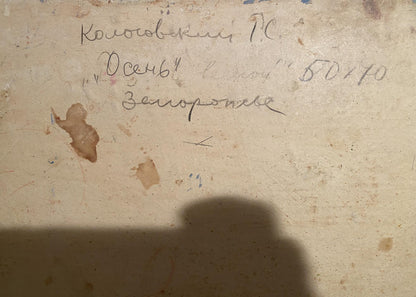 Кологовский Г.С.
„Осень" 50х70
Запорожье